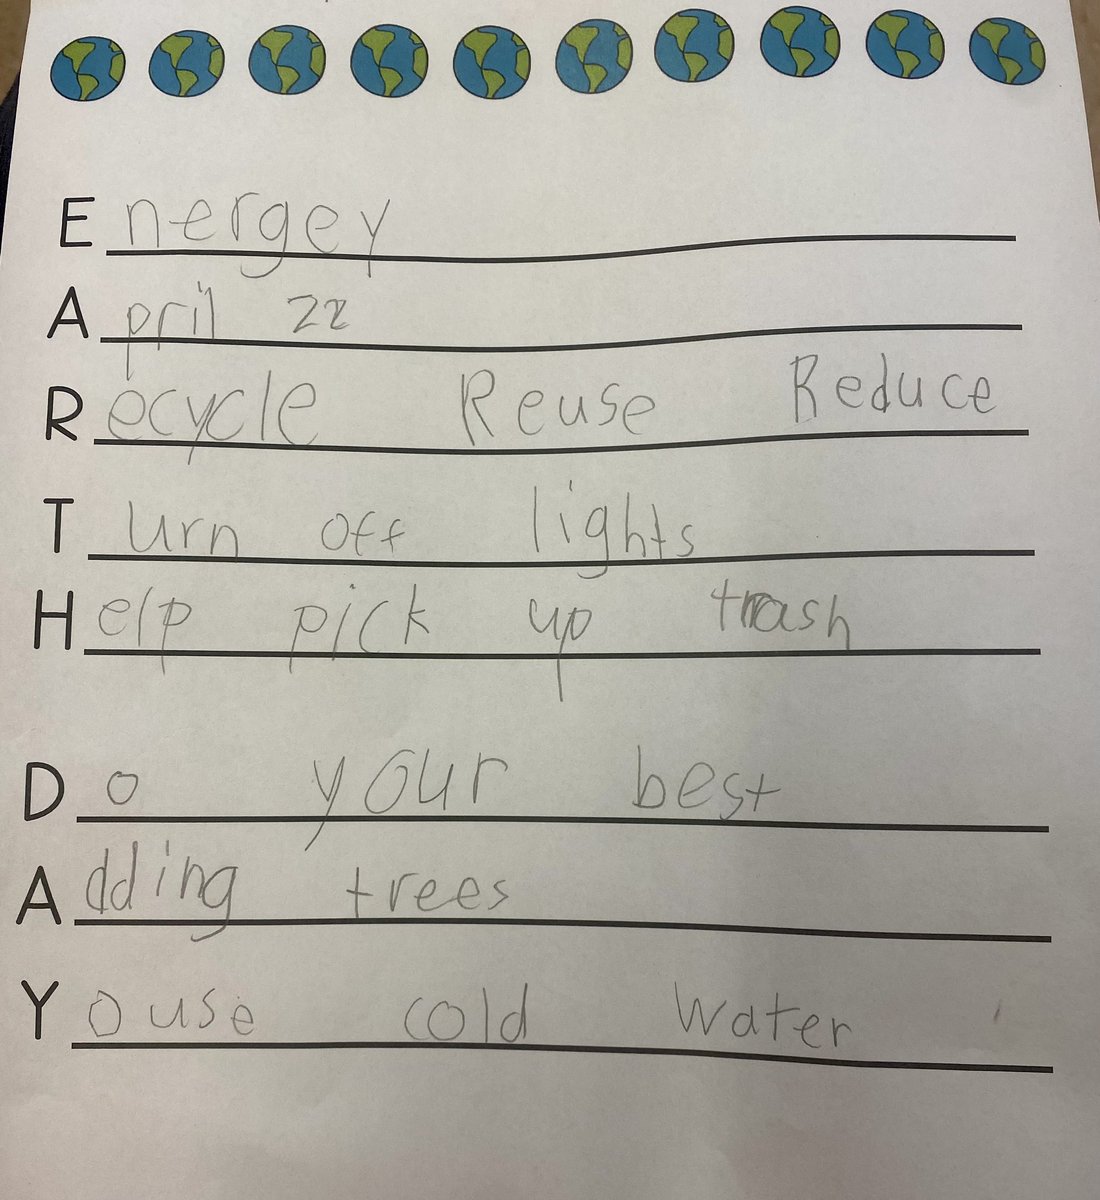 Energey
April 22
Recycle Reuse Reduce
Turn off lights
Help pick up trash
Do your best
Adding trees
Youse cold water